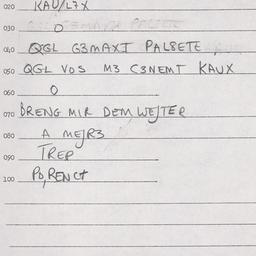 020 KAU/L7X
030 O
040 QGL G3MAXI PALSETE
050 QGL VOS M3 C3NEMT KAUX
060 O
070 BRENG MIR DEM WEJTER
080 A MEJR3
090 TREP
100